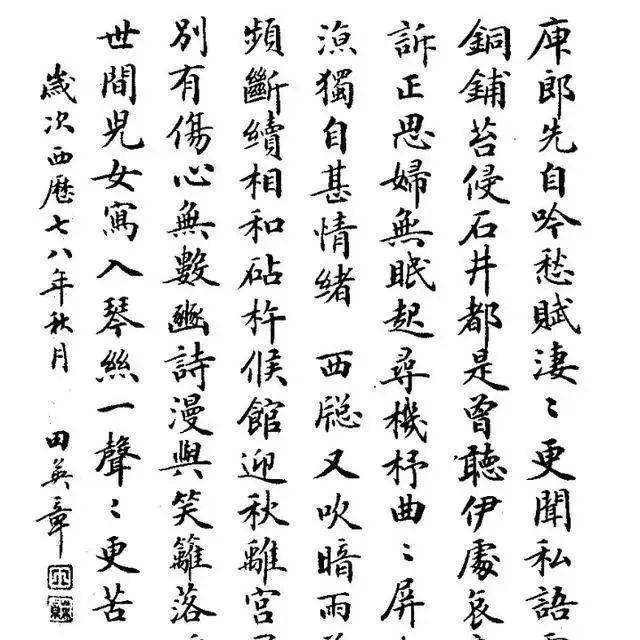 庾郎先自吟愁賦淒〻更聞私語
銅鋪苔侵石井都是曾聽伊處哀
訴正思婦無眠起尋機杼曲〻屏
涼獨自甚情緒　西牕又吹暗雨
頻斷續相和砧杵候館迎秋離宮
別有傷心無數豳詩漫與笑籬落
世間兒女寫入琴絲一聲〻更苦
歲次西曆七八年秋月　田英章